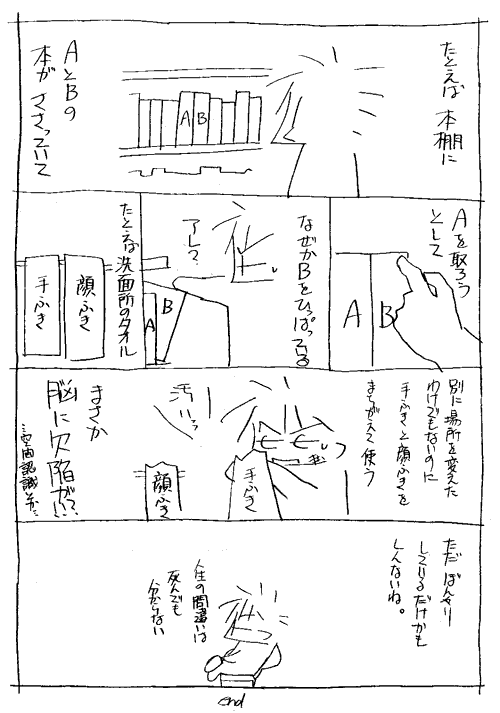 たとえば 本棚に
A
B
AとBの
本が ささっていて
Aを取ろう
として
A
B
なぜかBをひっぱっている
アレ?
B
A
たとえば洗面所のタオル
顔ふき
手ふき
別に場所を変えた
わけでもないのに
手ふきと顔ふきを
まちがえて使う
手ふき
汚いっ
顔ふき
まさか
脳に欠陥が!?
ただ ぼんやり
しているだけかも
しんないね。
人生の間違いは
死んでも
分からない
end